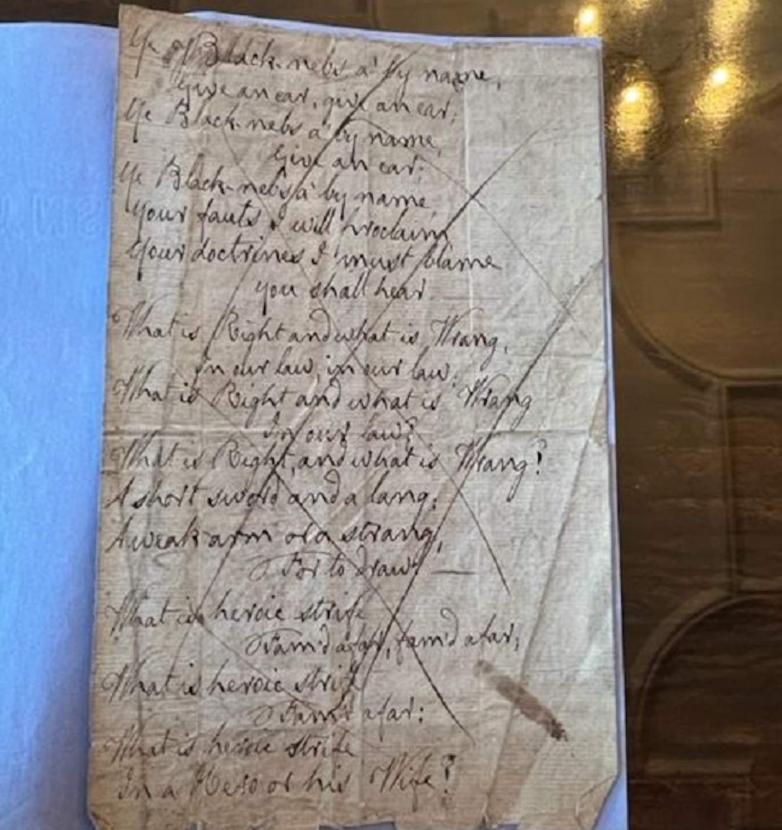 Ye Black-nebs a' by name,
Give an ear, give an ear,
Ye Black-nebs a' by name,
Give an ear;
Ye Black-nebs a' by name
Your fauts I will proclaim
Your doctrines I must blame
you shall hear
What is Right and what is Wrang,
In our law, in our law,
What is Right and what is Wrang
In our law?
What is Right, and what is Wrang?
A short sword and a lang;
A weak arm or a strang,
For to draw. —
What is heroic strife
Fam'd afar, fam'd afar;
What is heroic strife
Fam'd afar:
What is heroic strife
In a Hero or his Wife?